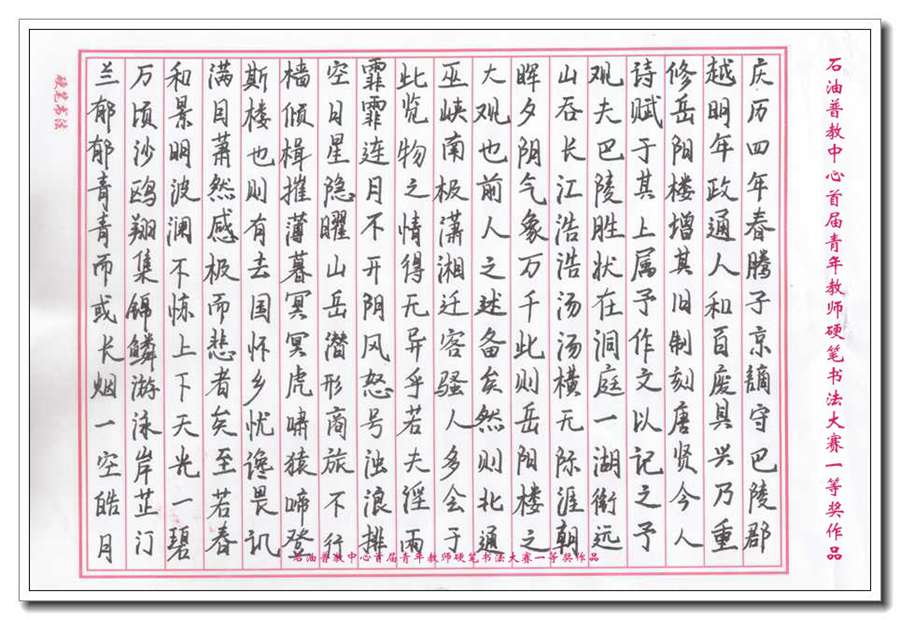 石油普教中心首届青年教师硬笔书法大赛一等奖作品
庆历四年春腾子京谪守巴陵郡
越明年政通人和百废具兴乃重
修岳阳楼增其旧制刻唐贤今人
诗赋于其上属予作文以记之予
观夫巴陵胜状在洞庭一湖衔远
山吞长江浩浩汤汤横无际涯朝
晖夕阴气象万千此则岳阳楼之
大观也前人之述备矣然则北通
巫峡南极潇湘迁客骚人多会于
此览物之情得无异乎若夫淫雨
霏霏连月不开阴风怒号浊浪排
空日星隐曜山岳潜形商旅不行
樯倾楫摧薄暮冥冥虎啸猿啼登
斯楼也则有去国怀乡忧谗畏讥
满目萧然感极而悲者矣至若春
和景明波澜不惊上下天光一碧
万顷沙鸥翔集锦鳞游泳岸芷汀
兰郁郁青青而或长烟一空皓月
硬笔书法
石油普教中心首届青年教师硬笔书法大赛一等奖作品